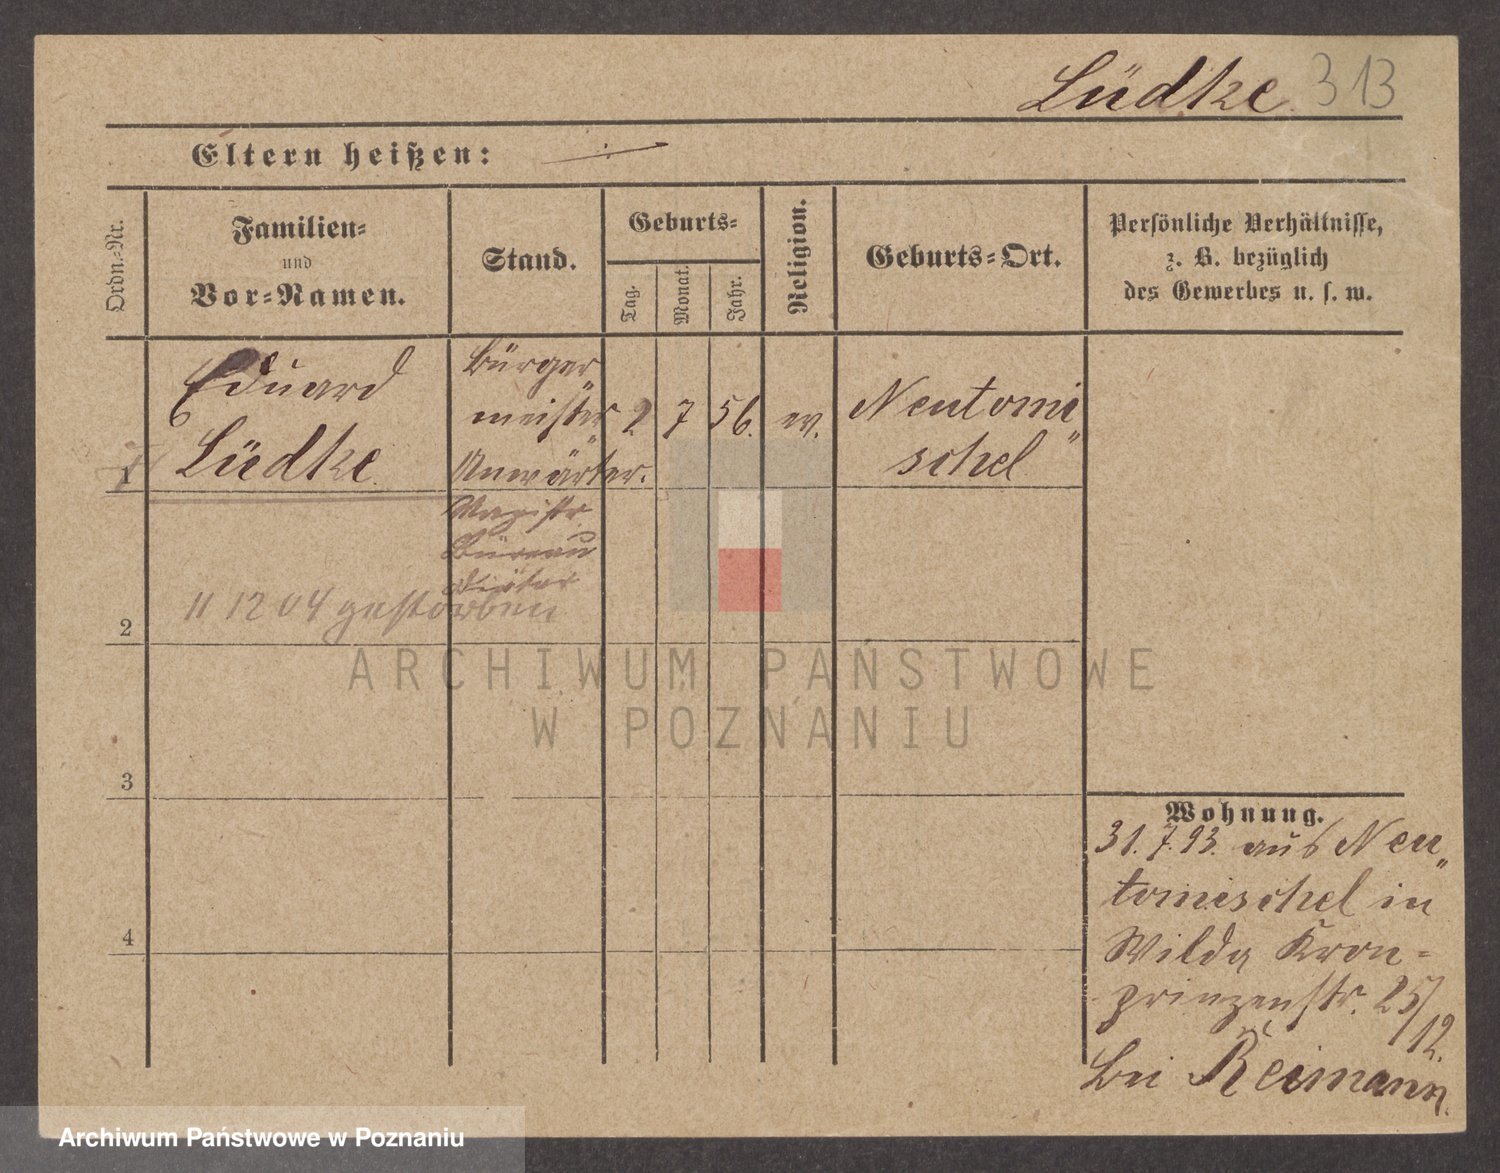 Lüdke 313
Eltern heißen:
Ordn.-Nr.
Familien-
und
Vor-Namen.
Stand.
Geburts-
Tag.
Monat.
Jahr.
Religion.
Geburts-Ort.
Persönliche Verhältnisse,
z. B. bezüglich
des Gewerbes u. s. w.
1
Eduard
Lüdke
Bürger
meister
Anwärter.
Magistr
Büreau
Diätar
2 7 56.
ev.
Neutomi
schel
2
11 12 04 gestorben
3
4
Wohnung.
31.7.93. aus Neu
tomischel in
Wilda Kron-
prinzenstr. 25/
12.
bei Reimann.
ARCHIWUM PAŃSTWOWE
W POZNANIU
Archiwum Państwowe w Poznaniu